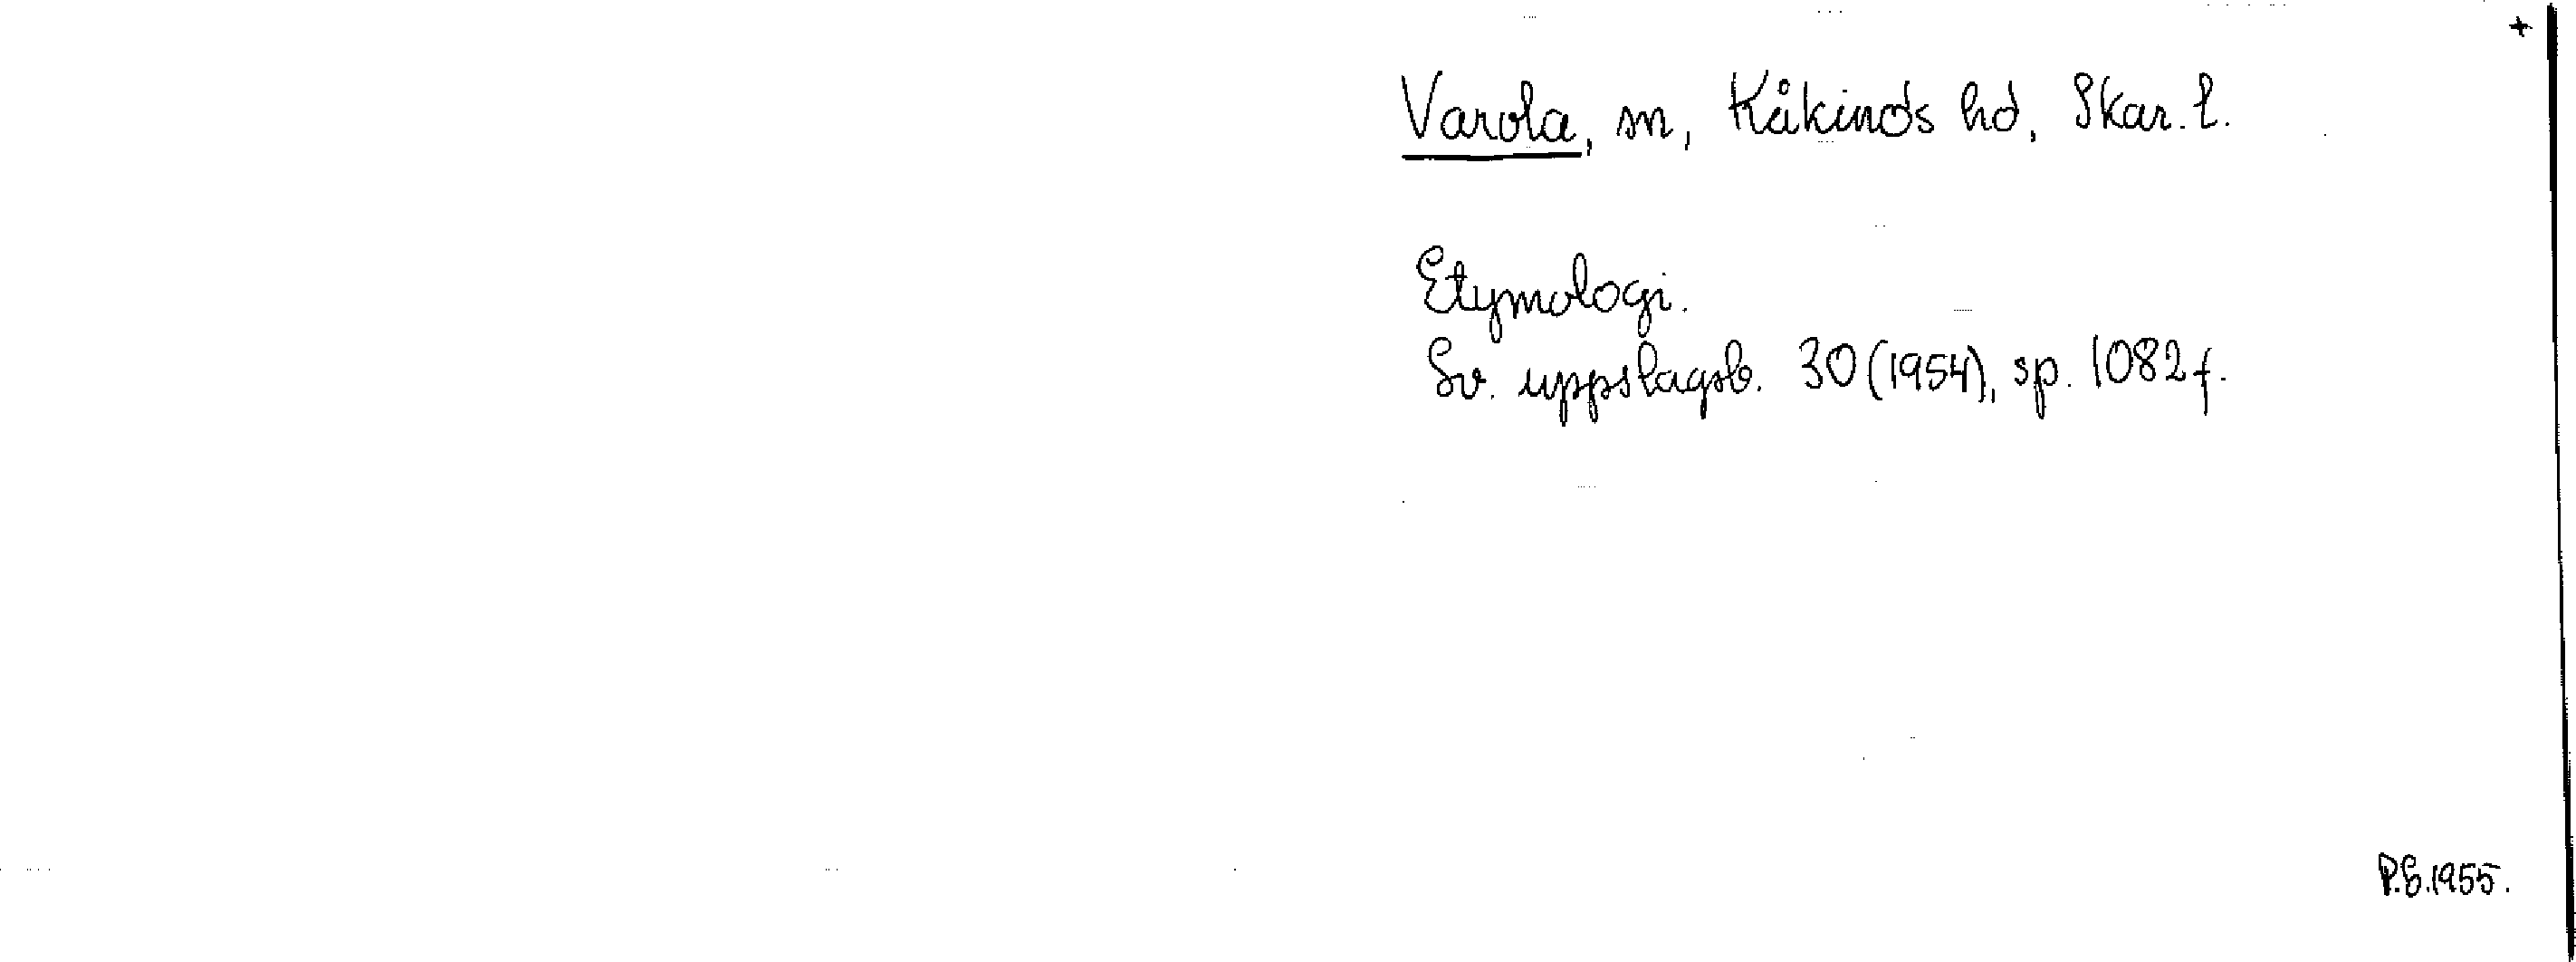 +
Varola, sn, Kåkinds hd, Skar. l.
Etymologi.
Sv. uppslagsb. 30 (1954), sp. 1082 f.
P.S. 1955.